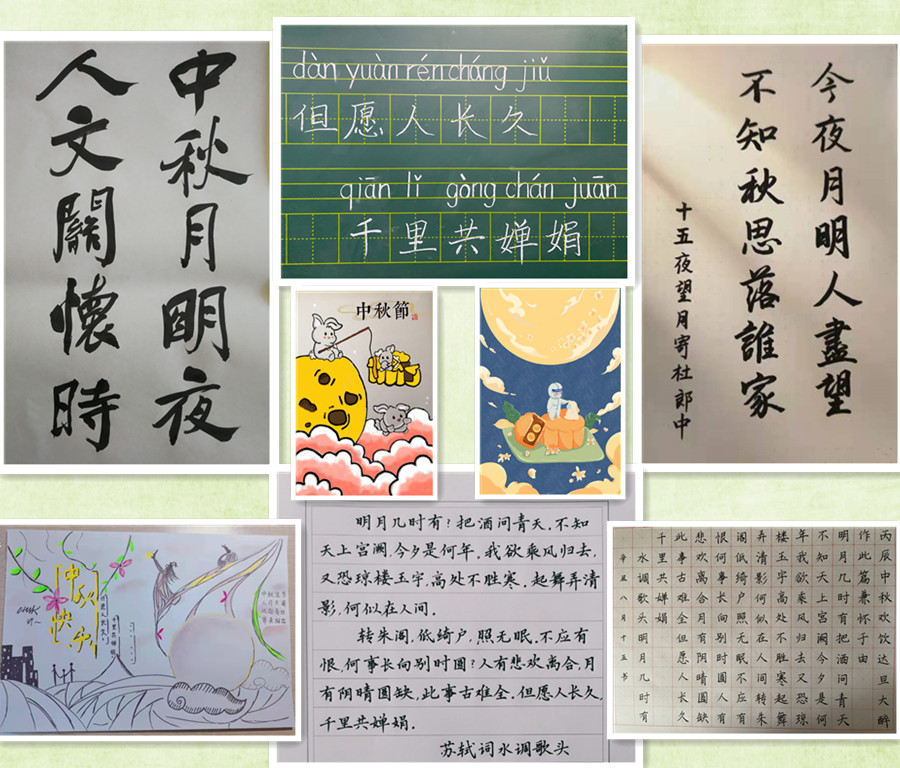 中秋月明夜
人文關懷時
dàn yuàn rén cháng jiǔ
但愿人长久
qiān lǐ gòng chán juān
千里共婵娟
今夜月明人盡望
不知秋思落誰家
十五夜望月寄杜郎中
中秋節
中秋
快乐
但愿人长久
千里共婵娟
明月几时有?把酒问青天.不知
天上宫阙,今夕是何年.我欲乘风归去,
又恐琼楼玉宇,高处不胜寒.起舞弄清
影,何似在人间.
转朱阁,低绮户,照无眠.不应有
恨,何事长向别时圆?人有悲欢离合,月
有阴晴圆缺,此事古难全.但愿人长久,
千里共婵娟.
苏轼词水调歌头
丙辰中秋欢饮达旦大醉
作此篇兼怀子由
明月几时有把酒问青天
不知天上宫阙今夕是何
年我欲乘风归去又恐琼
楼玉宇高处不胜寒起舞
弄清影何似在人间转朱
阁低绮户照无眠不应有
恨何事长向别时圆人有
悲欢离合月有阴晴圆缺
此事古难全但愿人长久
千里共婵娟
水调歌头明月几时有
辛丑八月十五书